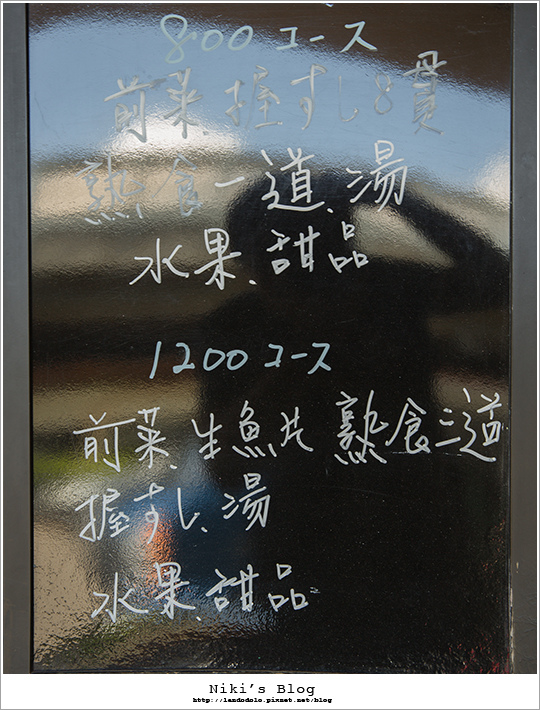 8.00 コース
前菜、握すし8貫
熟食一道、湯
水果、甜品
1200 コース
前菜、生魚片 熟食三道
握すし、湯
水果、甜品
Niki's Blog
http://landodolo.pixnet.net/blog